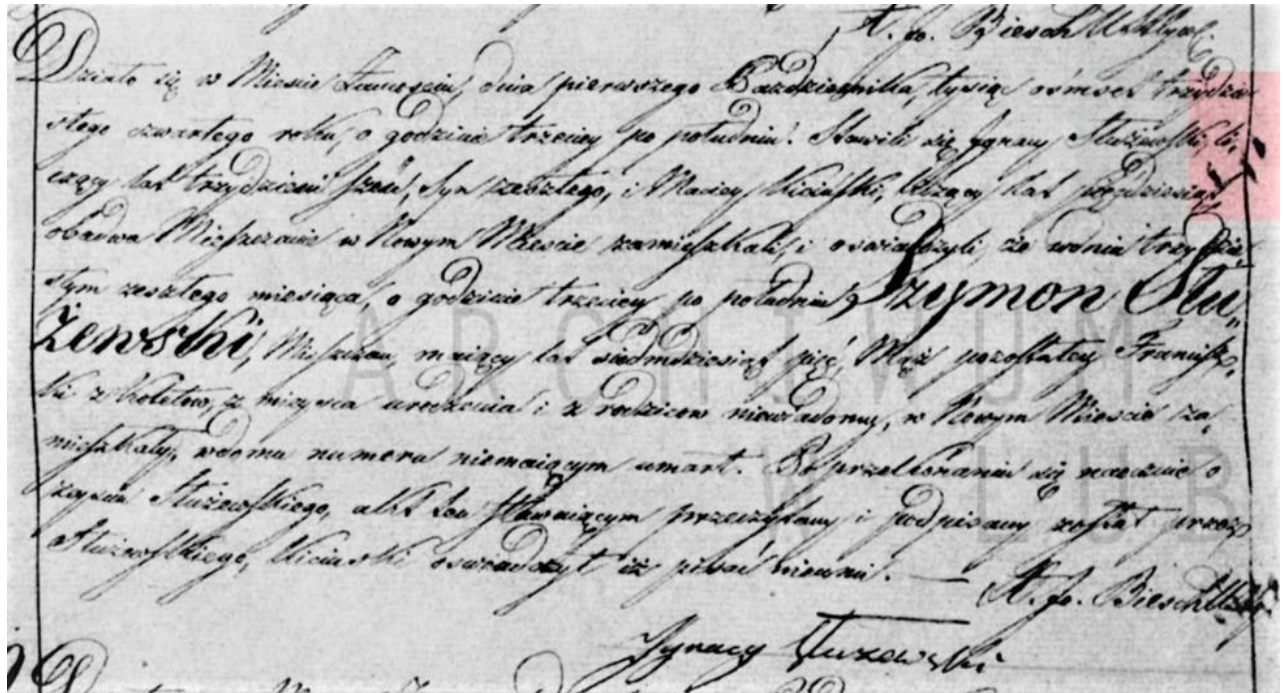 A. fo. Biesch
Działo się w Mieście dnia pierwszego Pazdziernika, tysiąc ośmset trzydzie
stego czwartego roku, o godzinie trzeciey po południu. Stawili się Jgnacy Służewski, li„
czący lat trzydzieści sześć, Syn zeszłego, i Maciey Kiciński, liczący lat pięćdziesiąt
obadwa Mieszczanie w Nowym Mieście zamieszkali, i oswiadczyli, że w dniu trzydzie„
stym zeszłego miesiąca, o godzinie trzeciey po południu, Szymon Słu„
żewski, Mieszczan, maiący lat siedmdziesiąt pięć, Mąż pozostałey Francisz„
ki z Koletow, z mieysca urodzenia i z rodzicow niewiadomy, w Nowym Mieście za„
mieszkały, w domu numeru niemaiącym umarł. Po przekonaniu się naocznie o
zeyściu Służewskiego, akt ten stawaiącym przeczytany i podpisany został przez
Służewskiego, Kiciński oswiadczył iż pisać nieumie. — A. fo. Biesch
Jgnacy Służewski
ARCHIWUM
W LUB